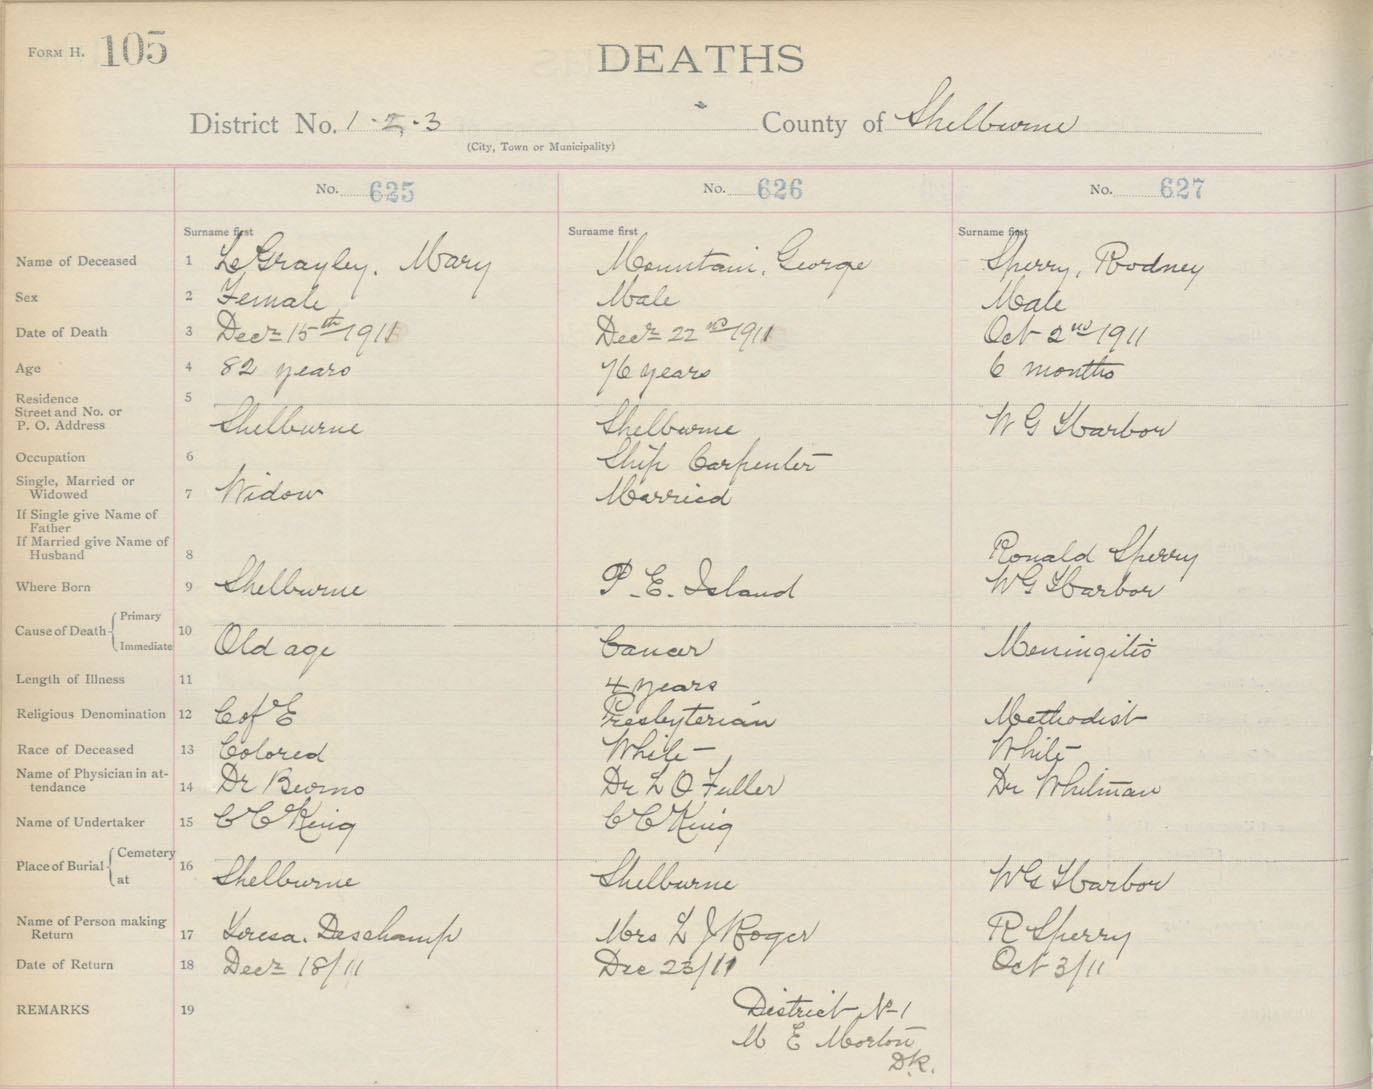 FORM H. 105
DEATHS
District No. 1 · 2 · 3 County of Shelburne
(City, Town or Municipality)
No. 625 No. 626 No. 627
Surname first Surname first Surname first
Name of Deceased 1 Mary Mountain, George Sperry, Rodney
Sex 2 Female Male Male
Date of Death 3 Decr 15th 1911 Decr 22nd 1911 Oct 2nd 1911
Age 4 82 years 76 years 6 months
Residence 5
Street and No. or
P. O. Address Shelburne Shelburne W G Harbor
Occupation 6 Ship Carpenter
Single, Married or
Widowed 7 Widow Married
If Single give Name of
Father
If Married give Name of
Husband 8 Ronald Sperry
Where Born 9 Shelburne P. E. Island W G Harbor
Cause of Death Primary
Immediate 10 Old age Cancer Meningitis
Length of Illness 11 4 years
Religious Denomination 12 C of E Presbyterian Methodist
Race of Deceased 13 Colored White White
Name of Physician in at-
tendance 14 Dr Dr L O Fuller Dr Whitman
Name of Undertaker 15 C C King C C King
Place of Burial Cemetery
at 16 Shelburne Shelburne W G Harbor
Name of Person making
Return 17 Teresa. Deschamp Mrs L J Roger R Sperry
Date of Return 18 Decr 18/11 Dec 23/11 Oct 3/11
REMARKS 19
District No 1
M E Morton
D.R.